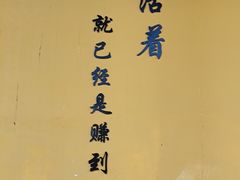 活着
就已经是赚到